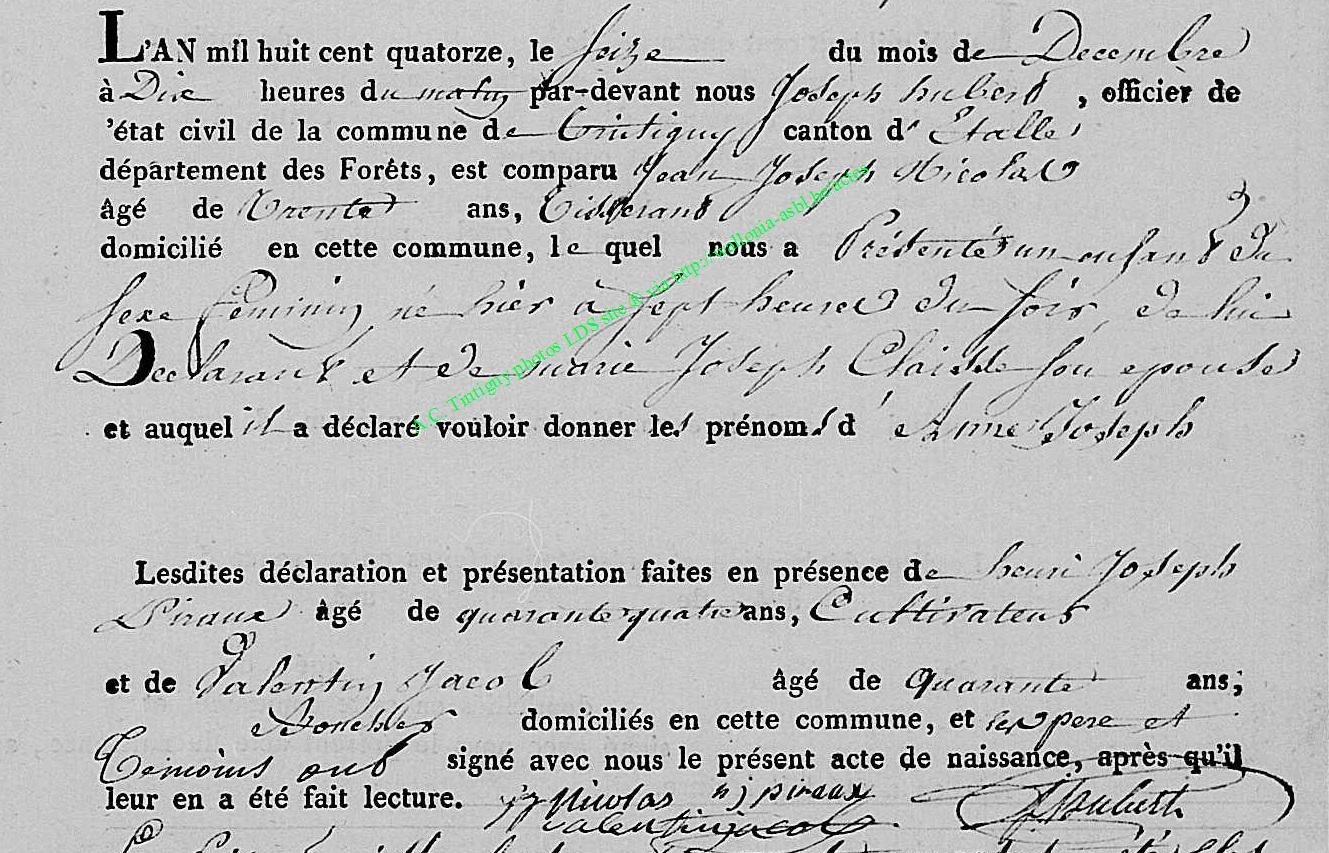 L'AN mil huit cent quatorze, le seize du mois de Decembre
à Dix heures du matin par-devant nous Joseph hubert, officier de
'état civil de la commune de Tintigny canton d' Etalle
département des Forêts, est comparu Jean Joseph Nicolas
âgé de Trente ans, Tisserand
domicilié en cette commune, le quel nous a Présenté un enfant du
sexe feminin né hier à sept heures du soir, de lui
Declarant et de marie Joseph Claisse son epouse
et auquel il a déclaré vouloir donner les prénoms d' Anne Joseph
A.C. Tintigny photos LDS site & via http://wallonia-asbl.be/actes
Lesdites déclaration et présentation faites en présence de henri Joseph
Piraux âgé de quarante quatre ans, Cultivateur
et de Valentin Jacob âgé de quarante ans,
domiciliés en cette commune, et les pere et
Témoins ont signé avec nous le présent acte de naissance, après qu'il
leur en a été fait lecture. jj Nicolas hj piraux J hubert
valentin jacob